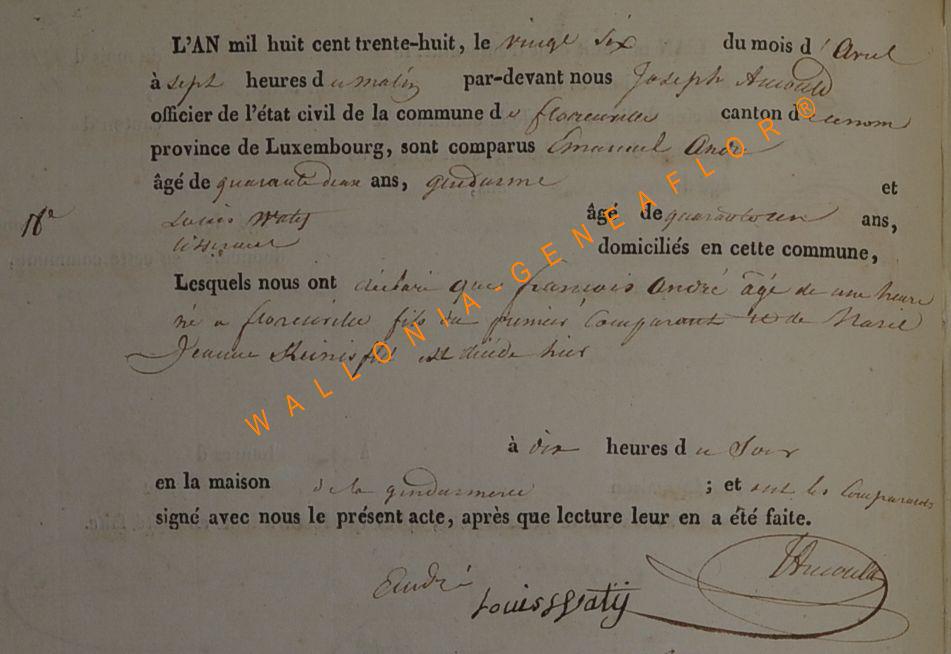 L'AN mil huit cent trente-huit, le vingt six du mois d'Avril
à sept heures du matin par-devant nous Joseph Arnould
officier de l'état civil de la commune de florenville canton d
province de Luxembourg, sont comparus Emanuel André
âgé de quarante deux ans, gendarme et
Louis Watÿ âgé de quarante un ans,
tisserand domiciliés en cette commune,
Lesquels nous ont déclaré que françois André âgé de une heure
né a florenville fils du premier Comparant et de Marie
Jeanne est décédé hier
à dix heures du Soir
en la maison de la gendarmerie ; et ont les Comparants
signé avec nous le présent acte, après que lecture leur en a été faite.
André
Louis Watÿ
JArnould
WALLONIA-GENEAFLOR®